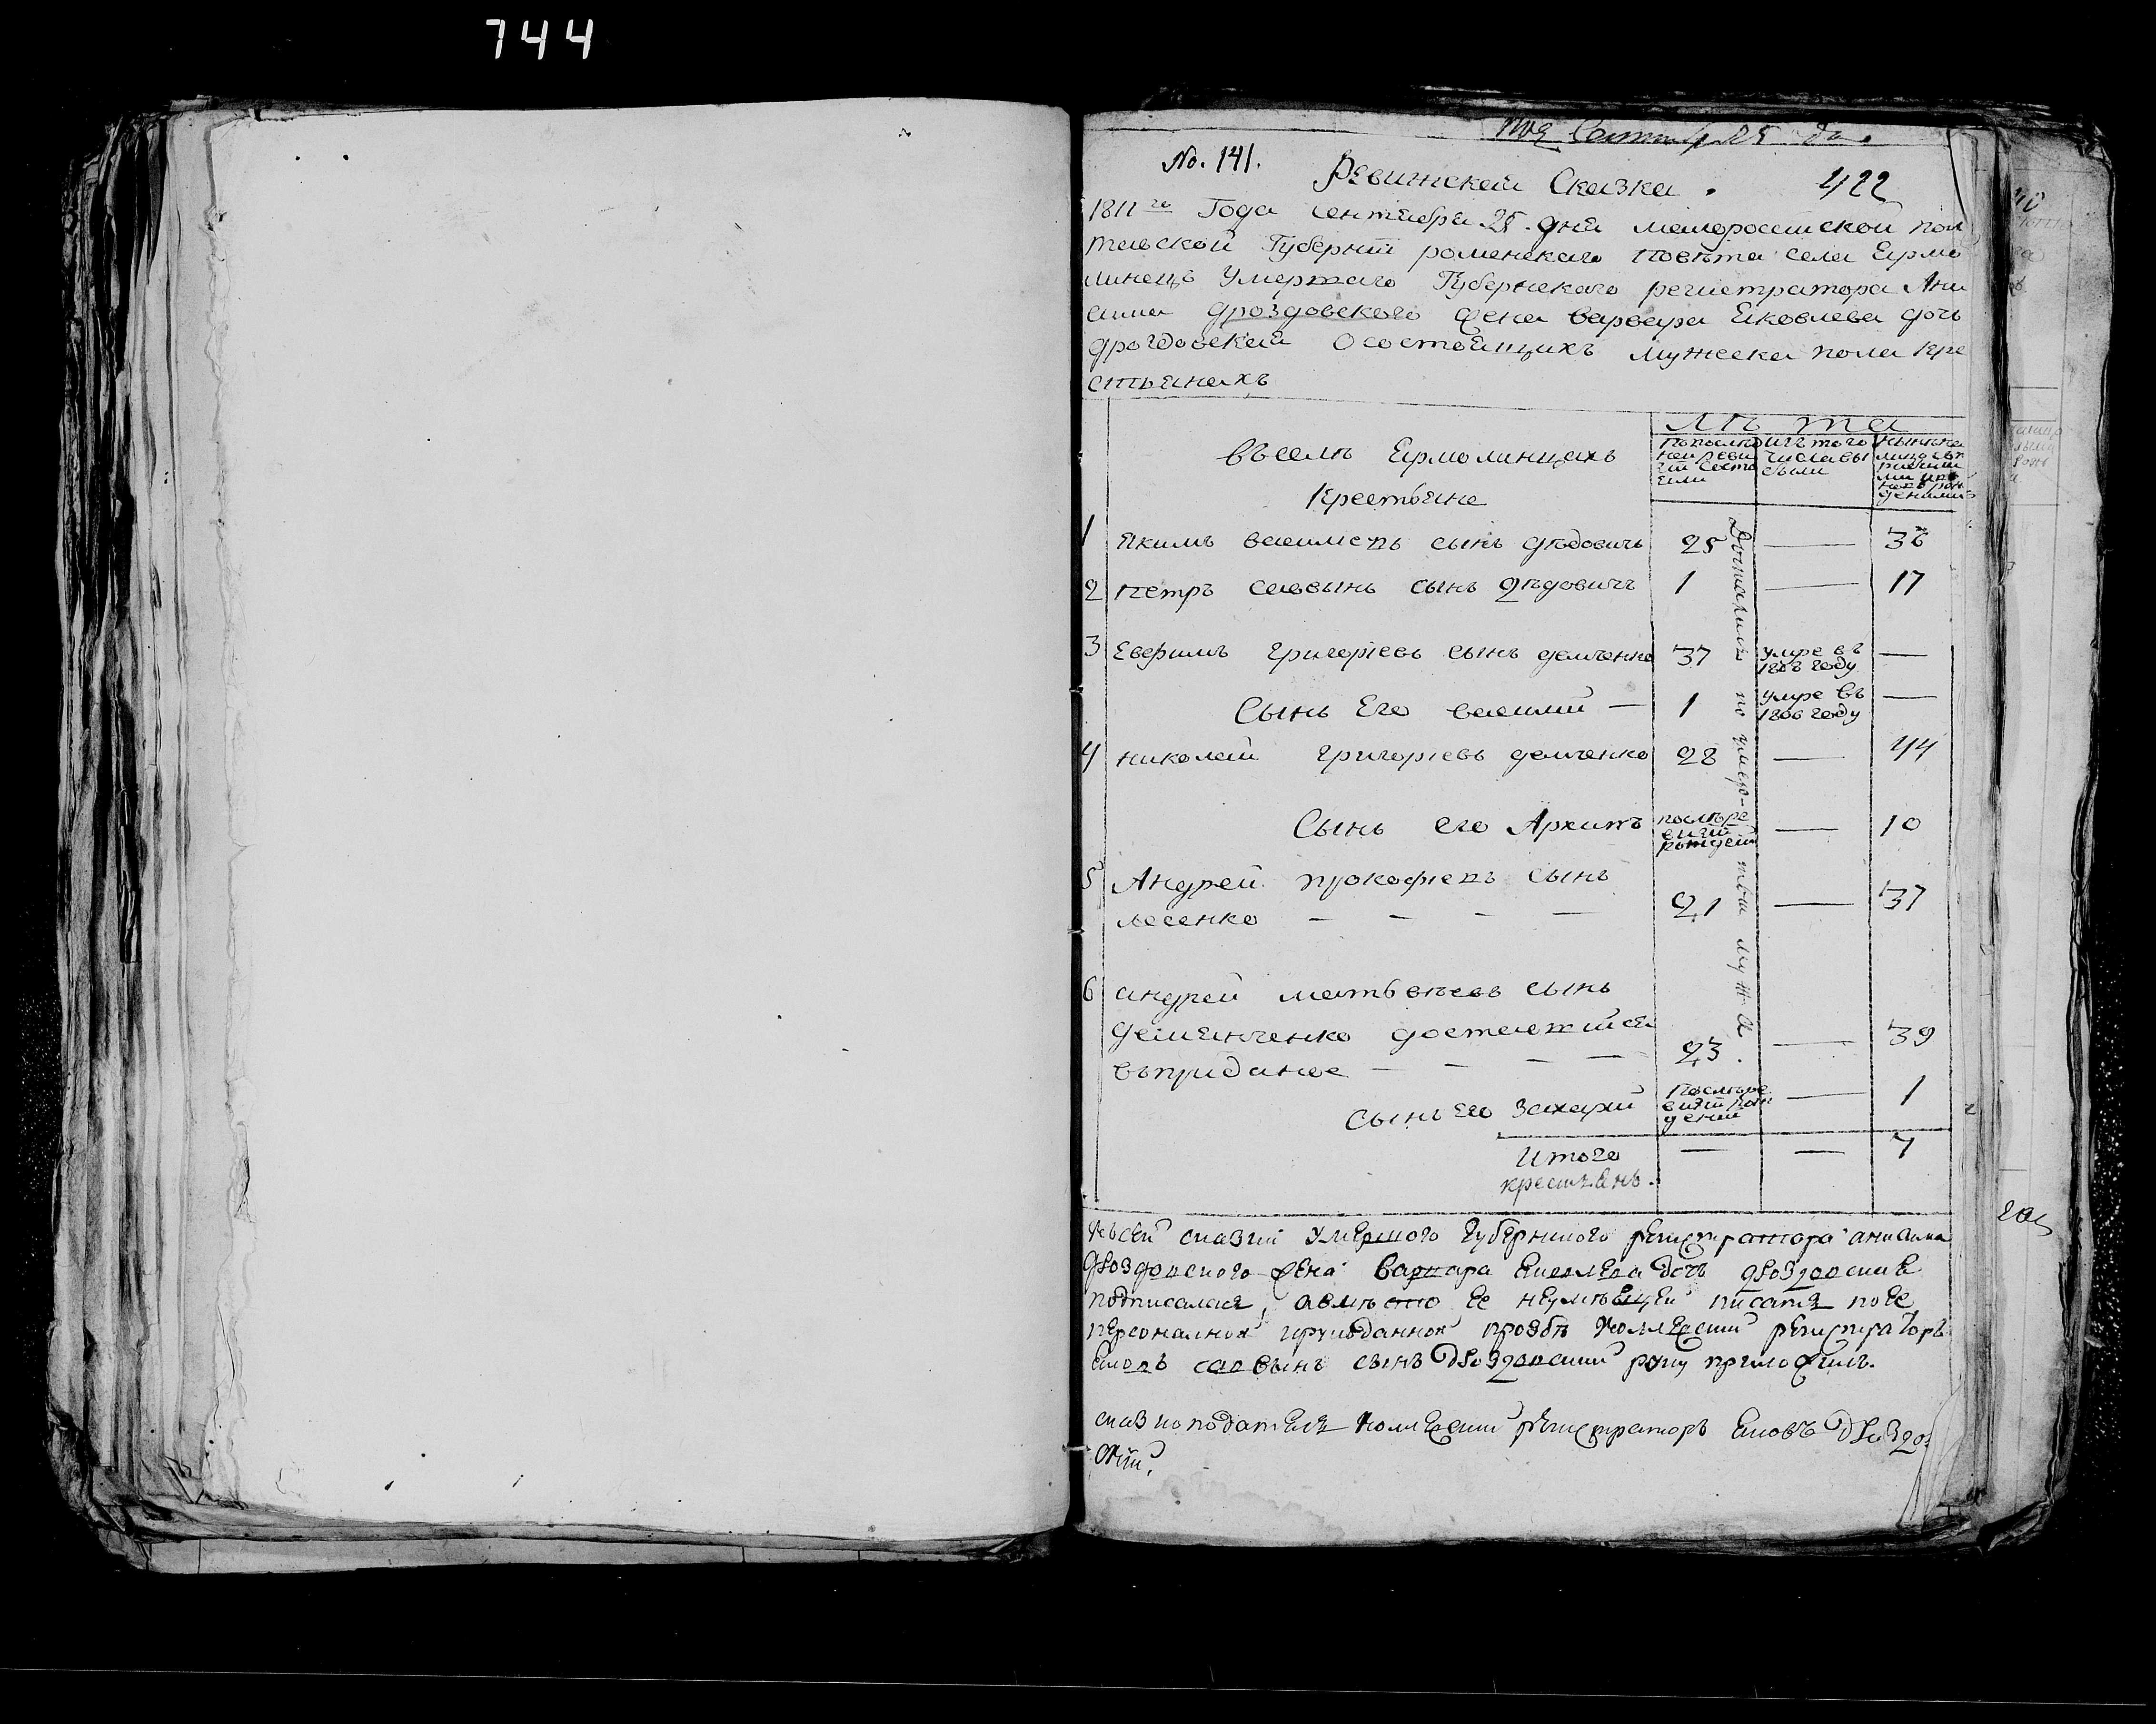 744
Сентября 25 дня
No. 141.
Ревижская Сказка. 422
1811го Года сентября 25. дня малороссийской пол
тавской Губернии роменскаго повѣта села Ермо
линецъ Умершаго Губернскаго регистратора Ани
сима дроздовского жена варвара Яковлева дочь
дроздовская О состоящихъ мужеска пола кре
стьянахъ
Лѣта
въ селѣ Ермолинцахъ
Крестьяне
по послѣд
ней реви
зіи состо
яли
изъ того
числа вы
были
нынѣ на
лицо съ
Досталися по умершом мужа
1 Якимъ василевъ сынъ дѣдовичъ 25 — 38
2 петръ саввинъ сынъ дѣдовичъ 1 — 17
3 Евфимъ григорьевъ сынъ демченко 37 умре въ —
году
Сынъ Его василий — 1 умре въ —
1806 году
4 николай григорьевъ демченко 28 — 44
Сынъ его Архипъ послѣ ре — 10
визіи
рожден
5 Андрей прокофьевъ сынъ
лесенко — — — — 21 — 37
6 андрей матвѣевъ сынъ
демянченко доставшийся
въ приданое — — — 23. — 39
Сынъ Его Захарий послѣ ре — 1
визіи рож
деній
Итого — — 7
крестьянъ.
Къ сей сказки умершого губернского регистратора анисима
дроздовского жена варвара Яковлева дочь дроздовская
подписалася, авмѣсто ее неумѣющей писать по ее
персоналной прозбѣ Колежский регистраторъ
Яковъ саввинъ сынъ Дроздовский руку приложилъ.
сказкоподатель Колежский регистраторъ Яковъ Дроздов
ский.